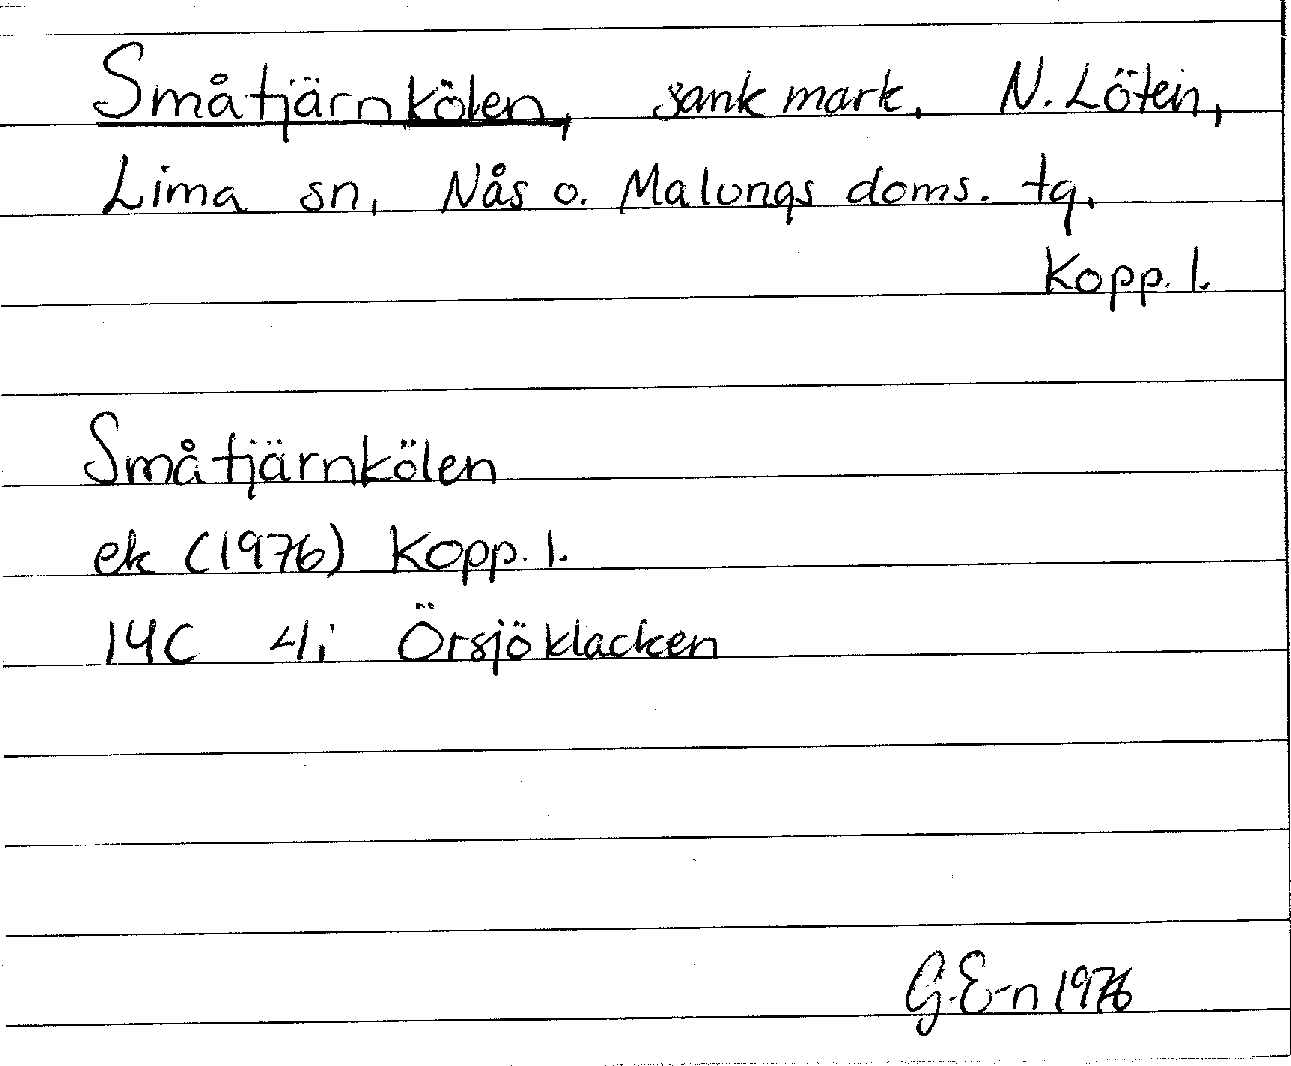 Småtjärnkölen, sank mark, N. Löten,
Lima sn, Nås o. Malungs doms. tg.
Kopp. l.
Småtjärnkölen
ek (1976) Kopp. l.
14C 4i Örsjöklacken
G. E-n 1976